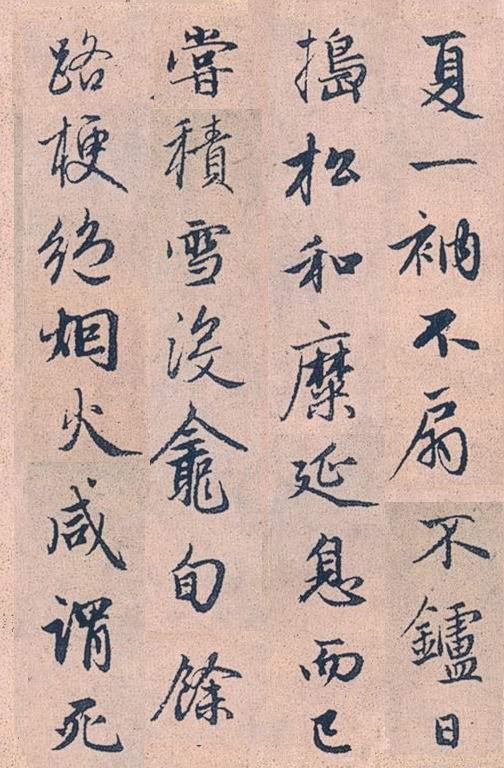 夏一衲不扇不鑪日
搗松和糜延息而已
嘗積雪没龕旬餘
路梗絕烟火咸謂死